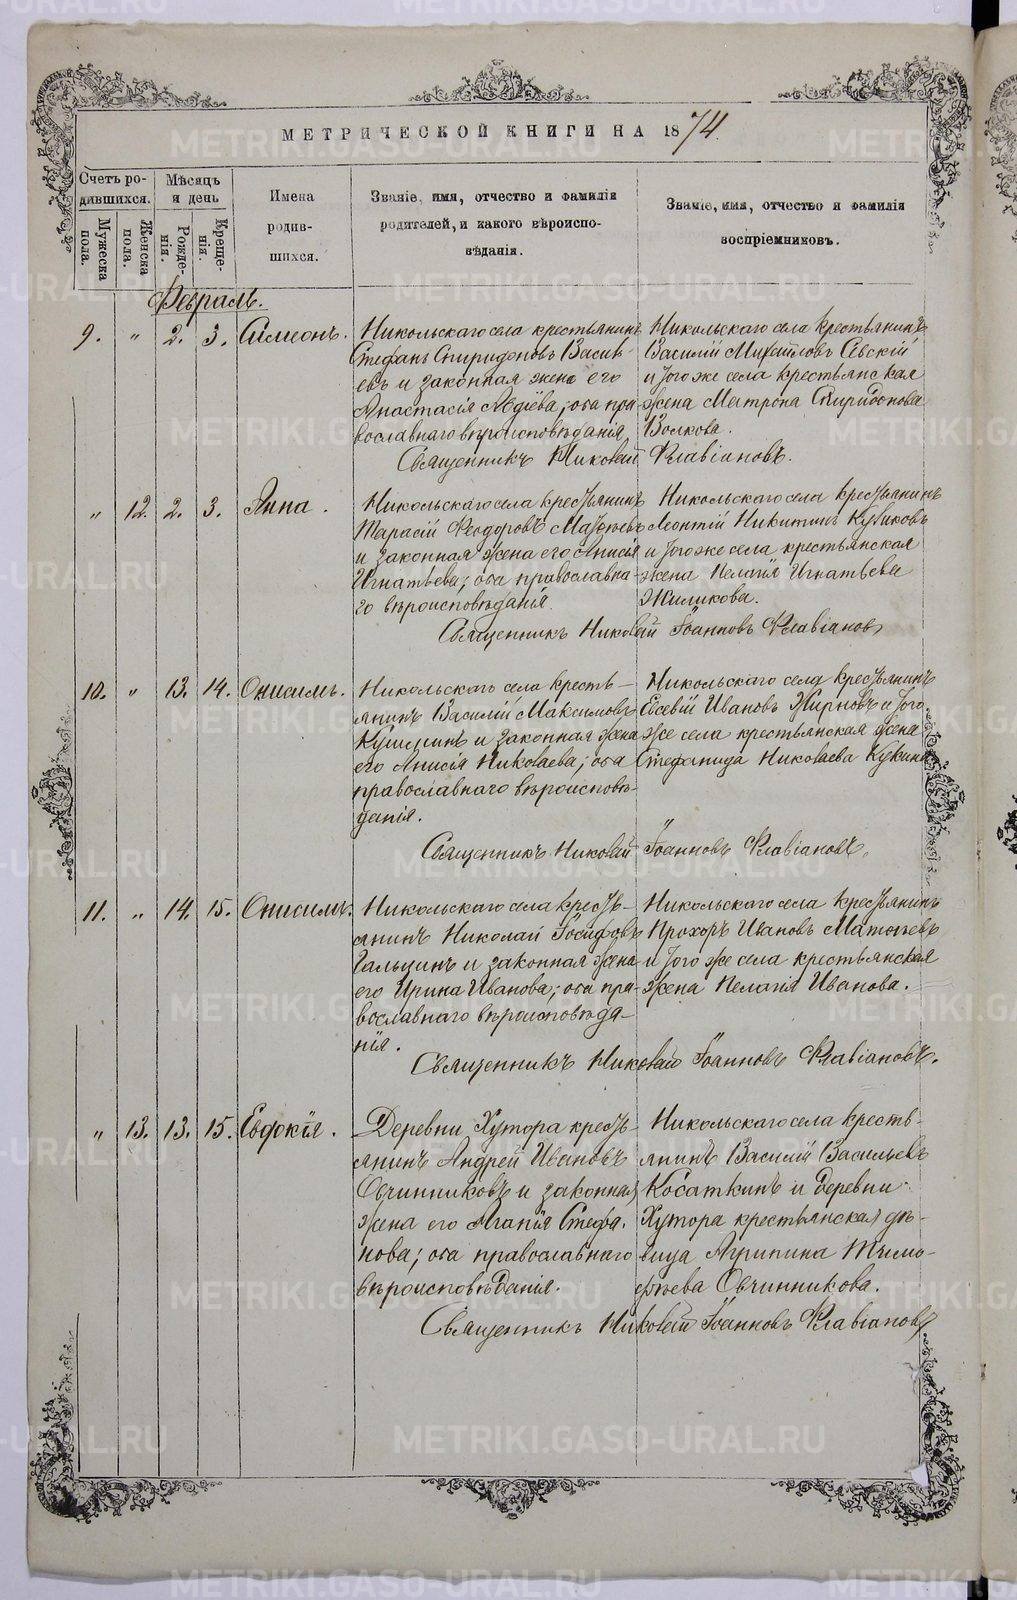 МЕТРИЧЕСКОЙ КНИГИ НА 1874.
Счетъ ро-
дившихся.
Мужеска
пола.
Женска
пола.
Мѣсяцъ
и день
Рожде-
нія.
Креще-
нія.
Имена
родив-
шихся.
Званіе, имя, отчество и фамилія
родителей, и какого вѣроиспо-
вѣданія.
Званіе, имя, отчество и фамилія
воспріемниковъ.
Февраль.
9. " 2. 3. Симеонъ.
Никольскаго села крестьянинъ
Стефанъ Спиридоновъ
и законная жена его
Анастасія Авдіева; оба пра-
вославнаго вѣроисповѣданія
Никольскаго села крестьянинъ
Василій Михайловъ Сѣвскій
и того же села крестьянская
жена Матрона Спиридонова
Волкова.
Священникъ Николай Флавіановъ.
" 12. 2. 3. Анна.
Никольскаго села крестьянинъ
Тарасій Феодоровъ
и законная жена его Анисія
Игнатьева; оба православна-
го вѣроисповѣданія
Никольскаго села крестьянинъ
Леонтій Никитинъ Куликовъ
и того же села крестьянская
жена Пелагія Игнатьева
Жиликова.
Священникъ Николай Іоанновъ Флавіановъ
10. " 13. 14. Онисимъ.
Никольскаго села кресть-
янинъ Василій Максимовъ
и законная жена
его Анисія Николаева; оба
православнаго вѣроисповѣ-
данія.
Никольскаго села крестьянинъ
Евсевій Ивановъ Жирновъ и того
же села крестьянская жена
Стефанида Николаева Кукина
Священникъ Николай Іоанновъ Флавіановъ.
11. " 14. 15. Онисимъ.
Никольскаго села кресть-
янинъ Николай Іосифовъ
Гальцинъ и законная жена
его Ирина Иванова; оба пра-
вославнаго вѣроисповѣда-
нія.
Никольскаго села крестьянинъ
Прохоръ Ивановъ Матвѣевъ
и того же села крестьянская
жена Пелагія Иванова.
Священникъ Николай Іоанновъ Флавіановъ.
" 13. 13. 15. Евдокія.
Деревни Хутора кресть-
янинъ Андрей Ивановъ
Овчинниковъ и законная
жена его Агапія Стефа-
нова; оба православнаго
вѣроисповѣданія.
Никольскаго села кресть-
янинъ Василій Васильевъ
Косаткинъ и деревни
Хутора крестьянская дѣ-
вица Агрипина Тимо-
фѣева Овчинникова.
Священникъ Николай Іоанновъ Флавіановъ
METRIKI.GASO-URAL.RU